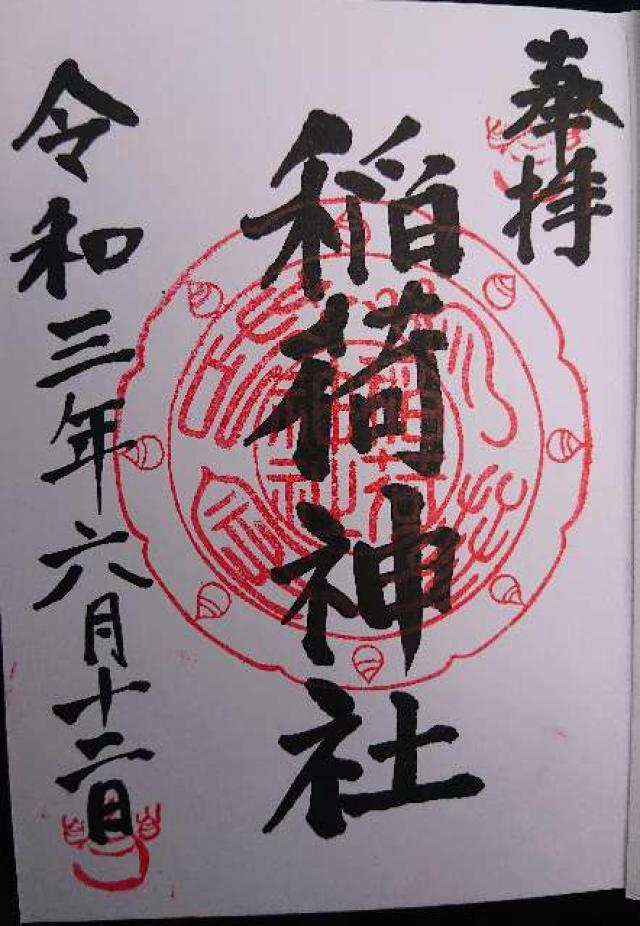 奉拝
稲荷神社
令和三年六月十二日